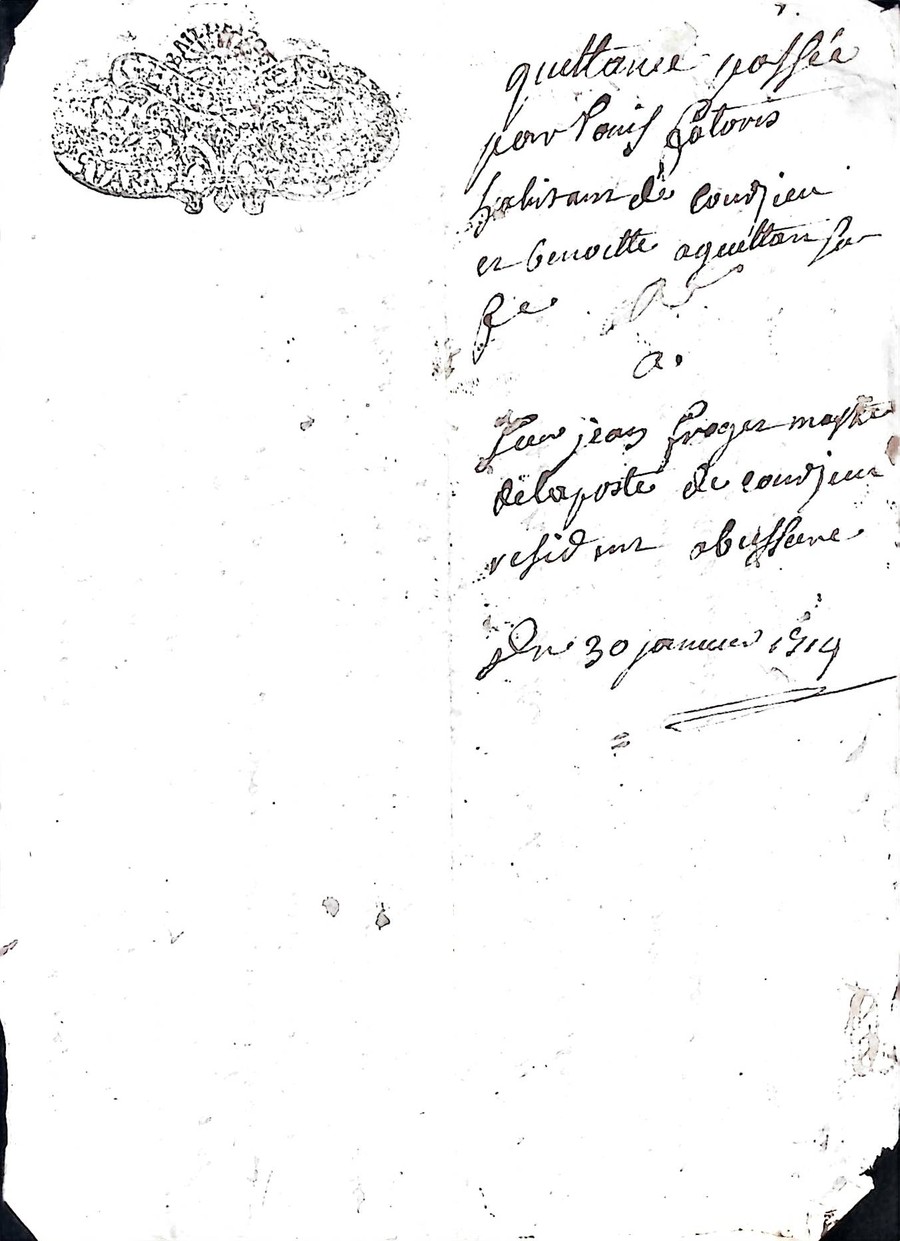 quittance passée
par Louis
habitant de coudjeu
et benoitte aquittan sa
fe
a.
Sieur jean froger maistre
de la poste de coudjeu
residant abussiere
Du 30 janvier 1714